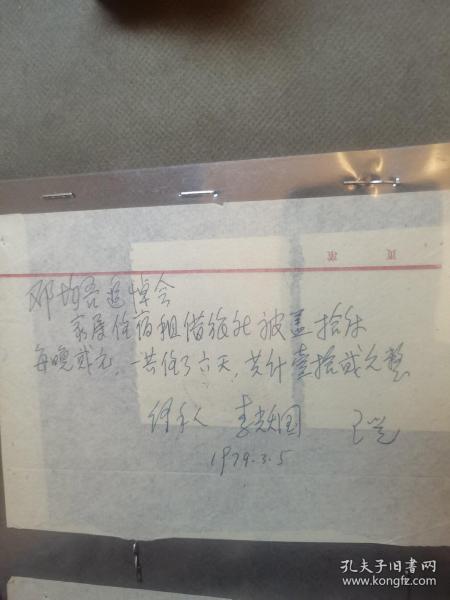 页 第
邓均吾追悼会
家属住宿租借被盖拾床
每晚贰元,一共住了六天,共计壹拾贰元整
经手人 李
1979.3.5
孔夫子旧书网
www.kongfz.com